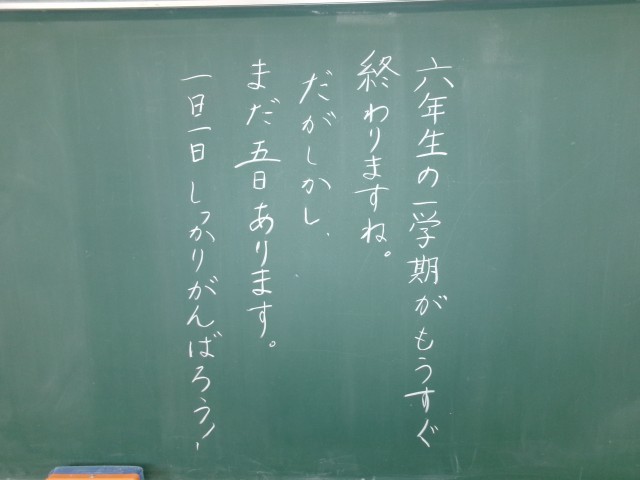 六年生の一学期がもうすぐ
終わりますね。
だがしかし、
まだ五日あります。
一日一日しっかりがんばろう!